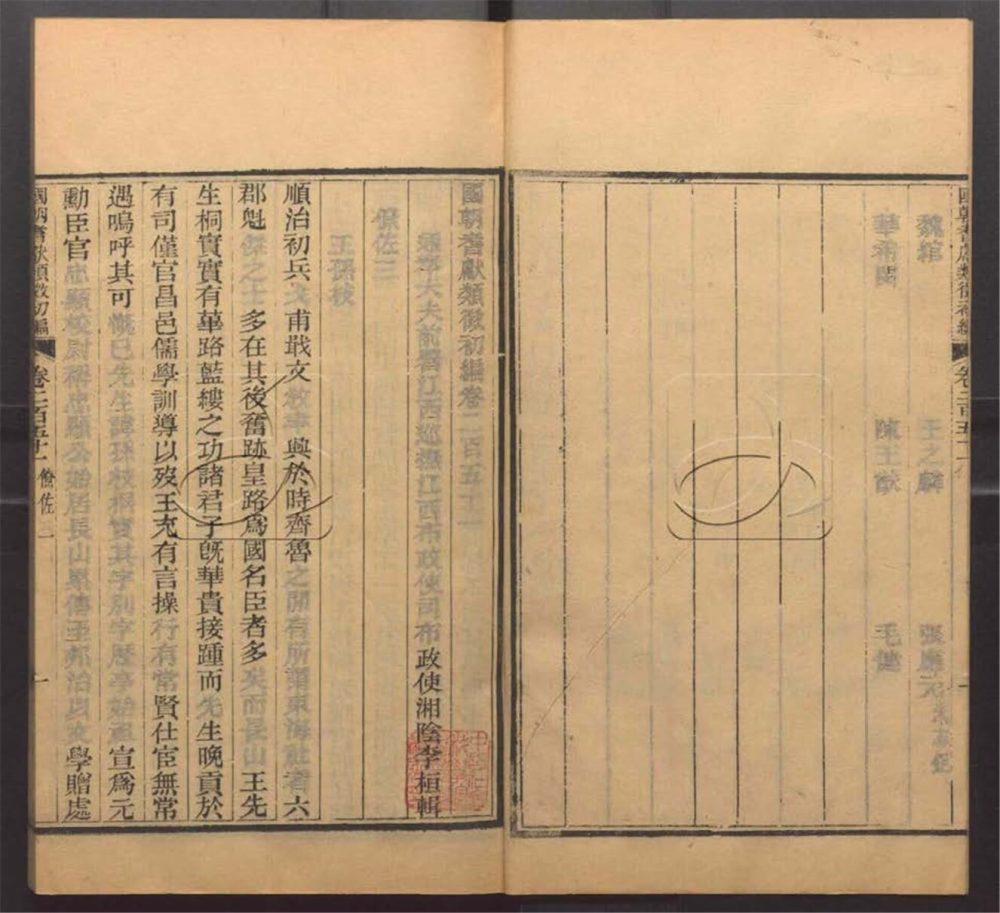 國朝耆獻類徵初編 卷二百五十一
魏綰 王之麟 張應元
華希閔 陳王猷 毛健
國朝耆獻類徵初編卷二百五十一
通奉大夫前署江西巡撫江西布政使司布政使湘陰李桓輯
僚佐三
王孫枝
順治初兵戈甫戢文教聿興於時齊魯之閒有所謂東海社者六
郡魁傑之士多在其後奮跡皇路為國名臣者多矣而長山王先
生桐實實有篳路藍縷之功諸君子旣華貴接踵而先生晚貢於
有司僅官昌邑儒學訓導以歿王充有言操行有常賢仕宦無常
遇嗚呼其可慨已先生諱孫枝桐實其字別字歷亭始祖宣為元
勳臣官忠顯校尉稱忠顯公始居長山累傳至邦治以文學贈處
國朝耆獻類徵初編 卷二百五十一 僚佐三 一